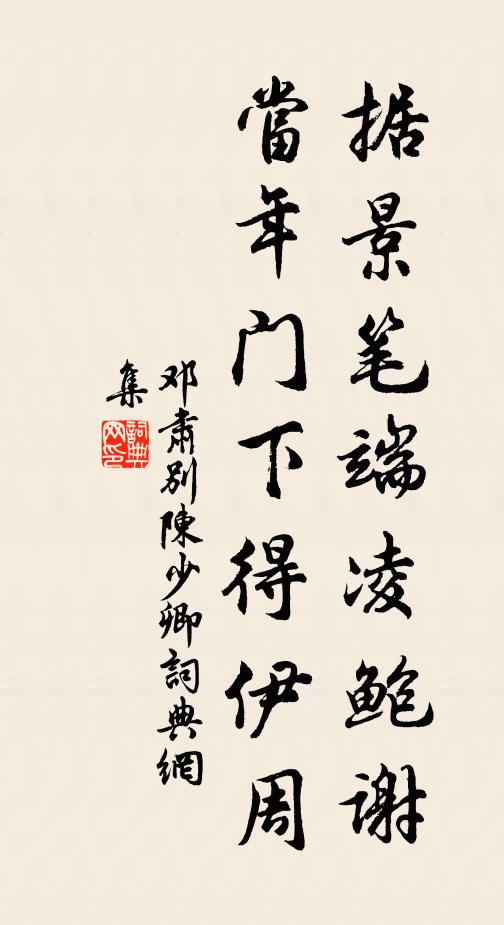 据景笔端凌鲍谢
當年门下得伊周
邓肃别陳少卿詞典網
集
詞典
网印